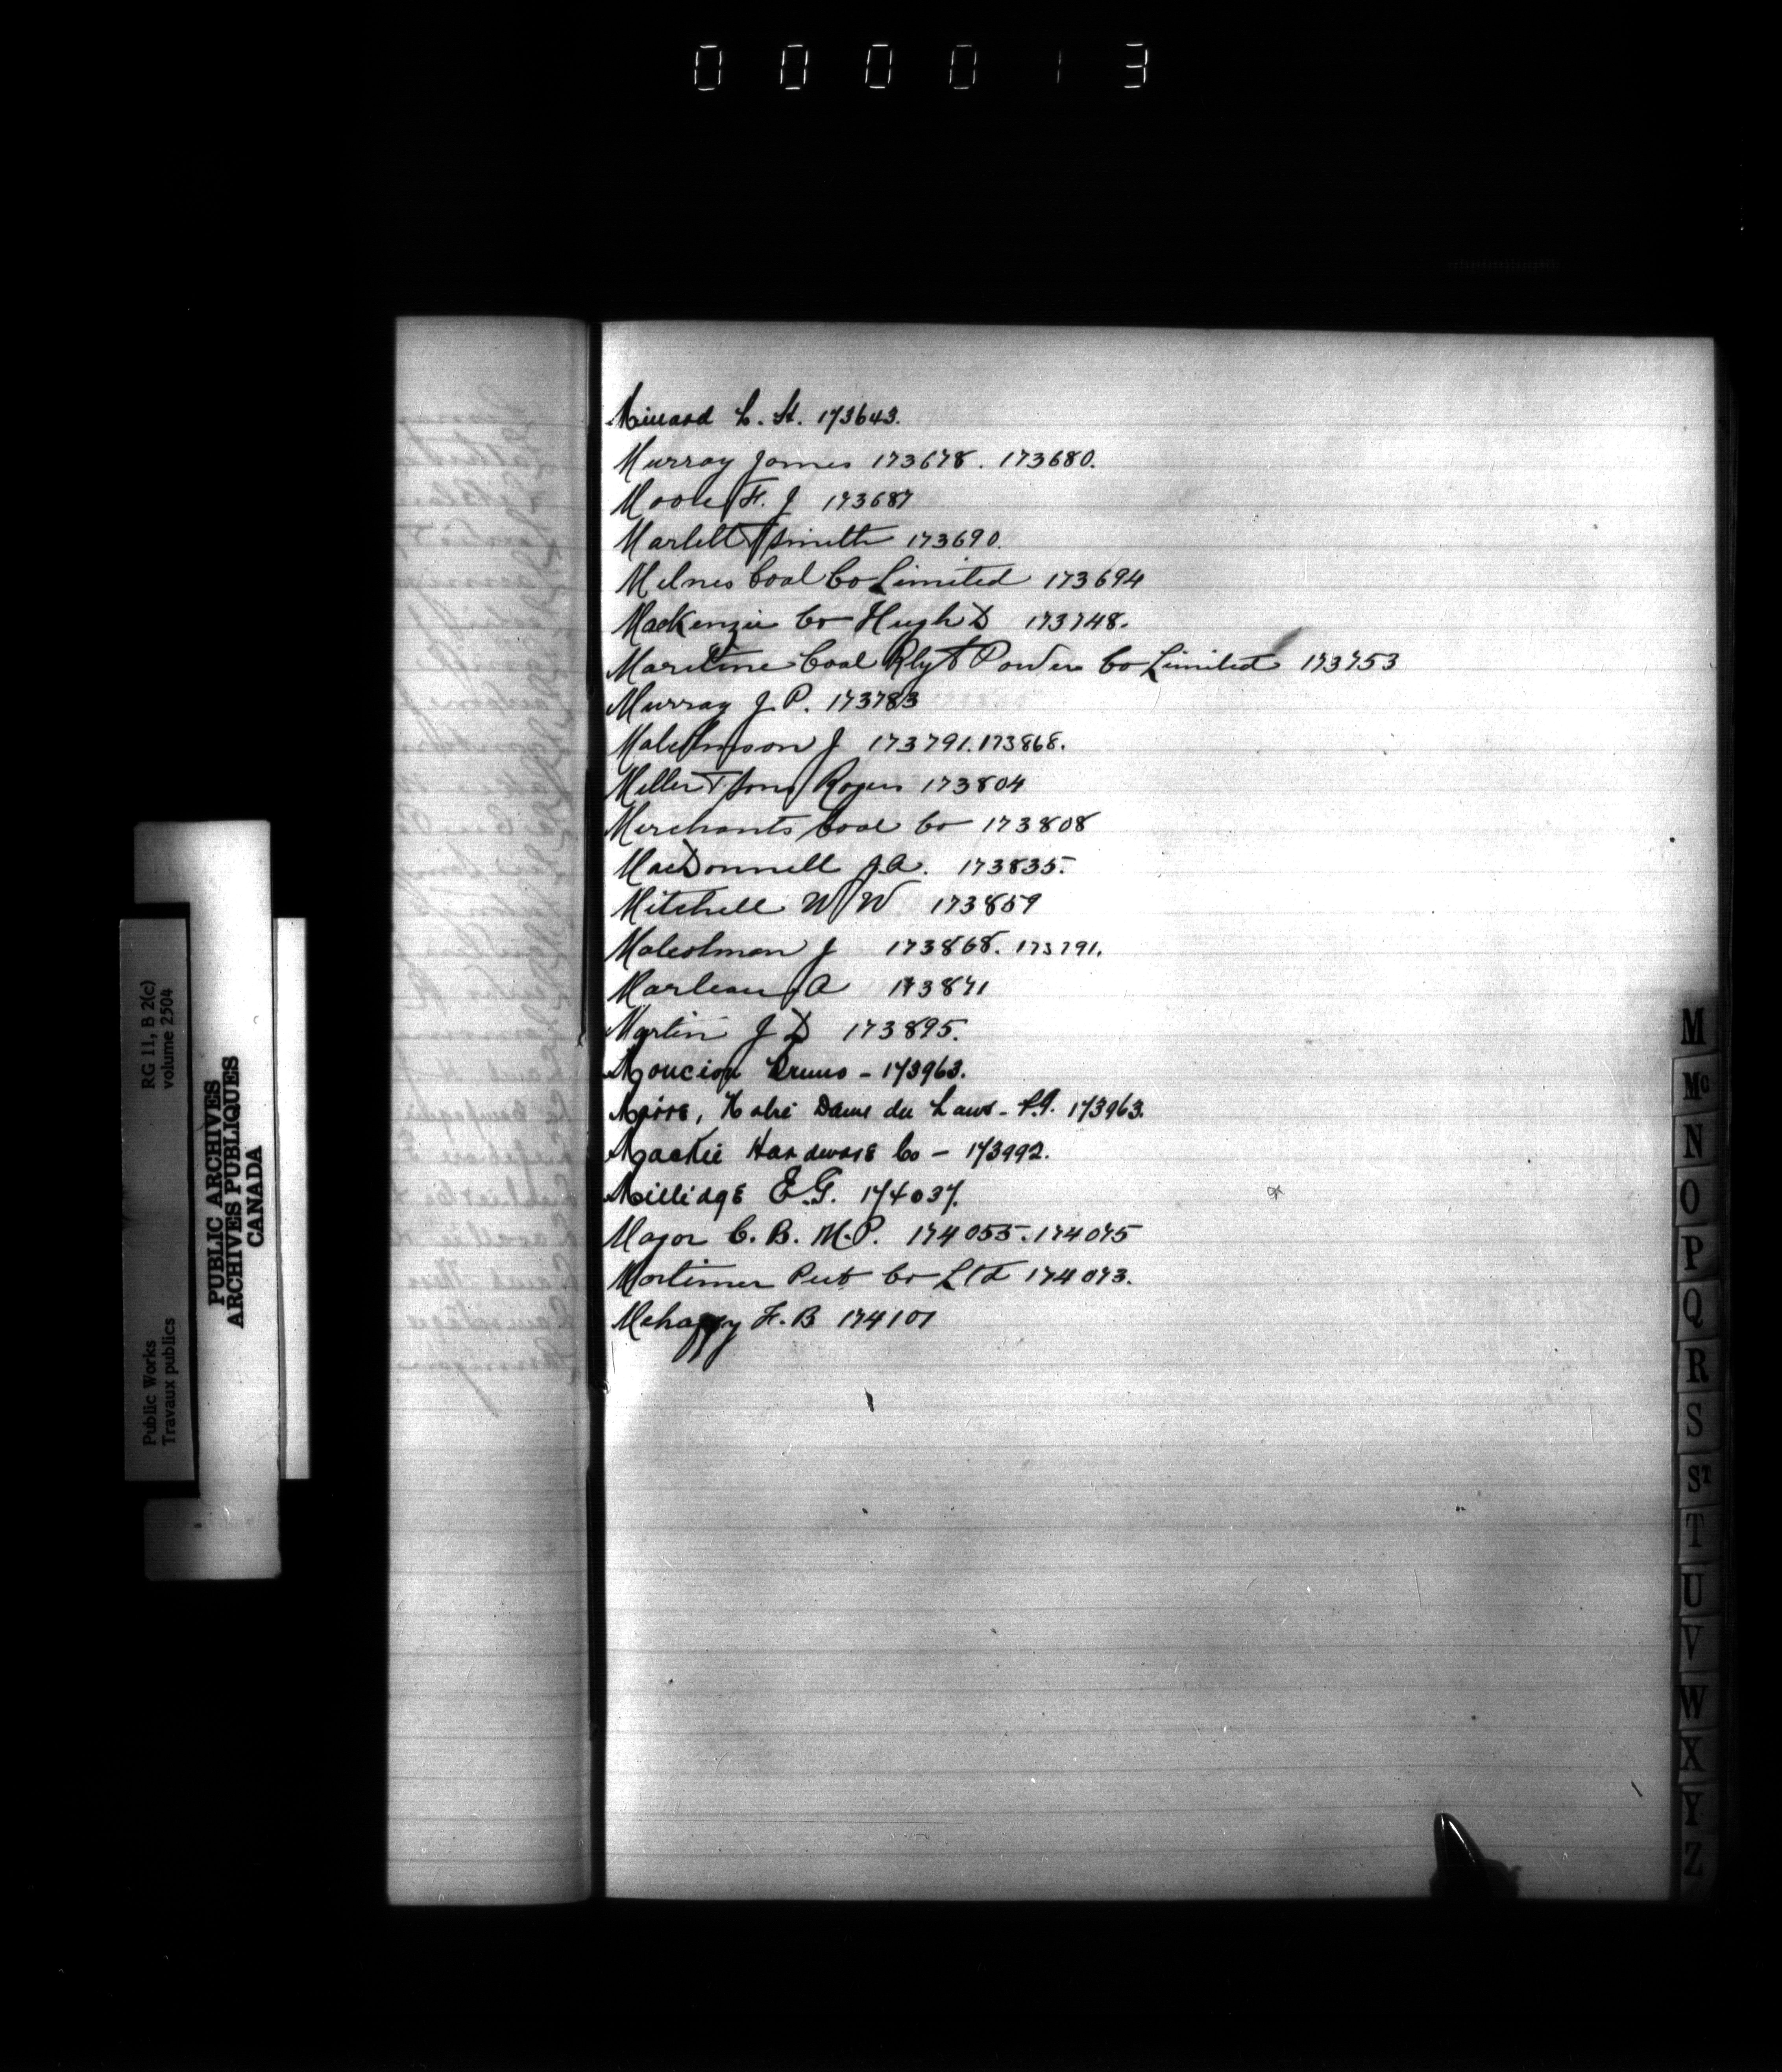 000013
Millard L. H. 173643.
Murray James 173678. 173680.
Moore F. J 173687
Marlett & Smith 173690.
Milnes Coal Co Limited 173694
MacKenzie Co Hugh D 173748.
Maritime Coal Rly & Power Co Limited 173753
Murray J. P. 173783
Malcolmson J 173791. 173868.
Miller & Sons Roger 173804
Merchants Coal Co 173808
MacDonnell J.A. 173835.
Mitchell W W 173859
Malcolmson J 173868. 173791.
Marleau A 173871
Martin J D 173895.
Moncion Bruno - 173963.
Maire, Notre Dame du Laus - P.Q. 173963.
Mackie Hardware Co - 173992.
Millidge E.G. 174037.
Major C. B. M.P. 174055. 174075
Mortimer Pub Co Ltd 174073.
Mehaffy F. B 174101
RG 11, B 2(c)
volume 2504
Public Works
Travaux publics
PUBLIC ARCHIVES
ARCHIVES PUBLIQUES
CANADA
M
Mc
N
O
P
Q
R
S
ST
T
U
V
W
X
Y
Z